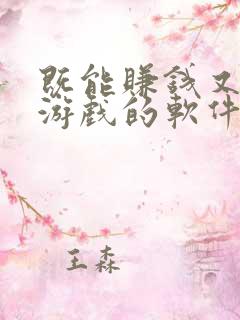 既能賺錢又
游戲的軟件
王森